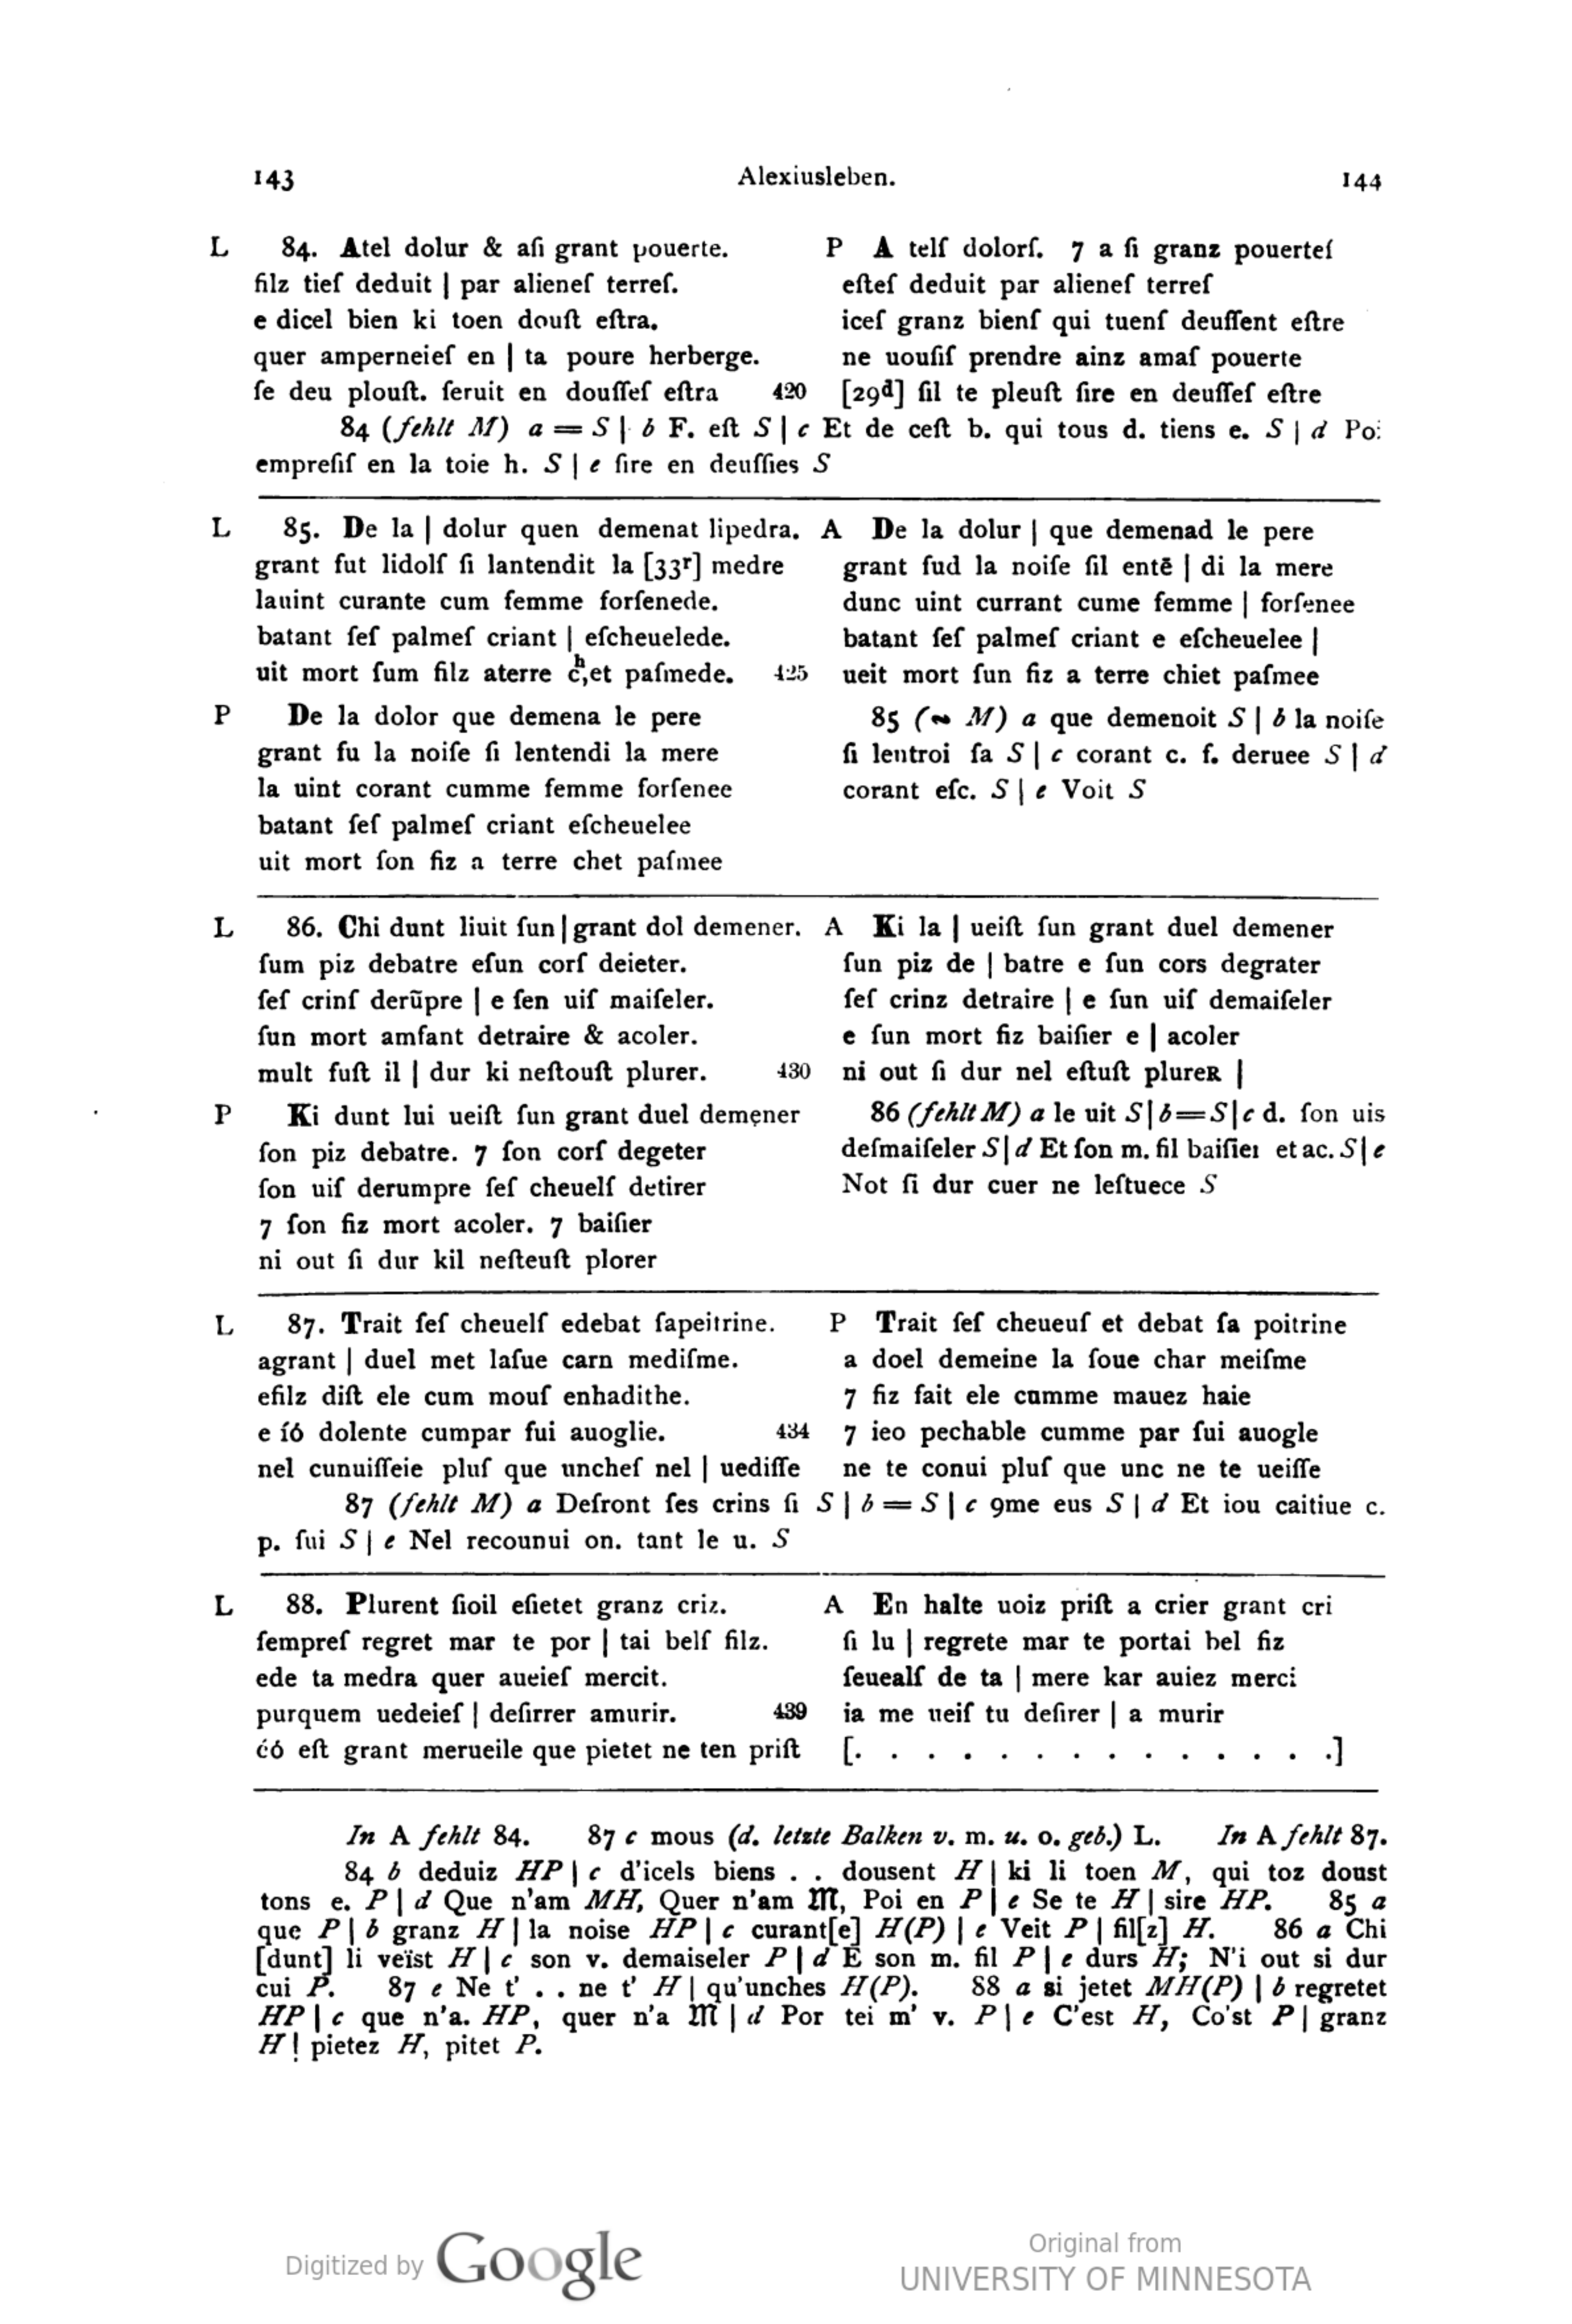 143 Alexiusleben. 144
L 84. Atel dolur & aſi grant pouerte.
filz tieſ deduit | par alieneſ terreſ.
e dicel bien ki toen douſt eſtra.
quer amperneieſ en | ta poure herberge.
ſe deu plouſt. ſeruit en douſſeſ eſtra 420
P A telſ dolorſ. 7 a ſi granz pouerteſ
eſteſ deduit par alieneſ terreſ
iceſ granz bienſ qui tuenſ deuſſent eſtre
ne uouſiſ prendre ainz amaſ pouerte
[29d] ſil te pleuſt ſire en deuſſeſ eſtre
84 (fehlt M) a = S | b F. eſt S | c Et de ceſt b. qui tous d. tiens e. S | d Poi
empreſiſ en la toie h. S | e ſire en deuſſies S
L 85. De la | dolur quen demenat lipedra.
grant fut lidolſ ſi lantendit la [33r] medre
lauint curante cum femme forſenede.
batant ſeſ palmeſ criant | eſcheuelede.
uit mort ſum filz aterre c͑het paſmede. 425
A De la dolur | que demenad le pere
grant fud la noiſe ſil entē | di la mere
dunc uint currant cume femme | forſenee
batant ſeſ palmeſ criant e eſcheuelee |
ueit mort ſun fiz a terre chiet paſmee
P De la dolor que demena le pere
grant fu la noiſe ſi lentendi la mere
la uint corant cumme femme forſenee
batant ſeſ palmeſ criant eſcheuelee
uit mort ſon fiz a terre chet paſmee
85 (∾ M) a que demenoit S | b la noiſe
ſi lentroi ſa S | c corant c. f. deruee S | d
corant eſc. S | e Voit S
L 86. Chi dunt liuit ſun | grant dol demener.
ſum piz debatre eſun corſ deieter.
ſeſ crinſ derũpre | e ſen uiſ maiſeler.
ſun mort amfant detraire & acoler.
mult fuſt il | dur ki neſtouſt plurer. 430
A Ki la | ueiſt ſun grant duel demener
ſun piz de | batre e ſun cors degrater
ſeſ crinz detraire | e ſun uiſ demaiſeler
e ſun mort fiz baiſier e | acoler
ni out ſi dur nel eſtuſt plureʀ |
P Ki dunt lui ueiſt ſun grant duel demener
ſon piz debatre. 7 ſon corſ degeter
ſon uiſ derumpre ſeſ cheuelſ detirer
7 ſon fiz mort acoler. 7 baiſier
ni out ſi dur kil neſteuſt plorer
86 (fehlt M) a le uit S | b = S | c d. ſon uis
deſmaiſeler S | d Et ſon m. fil baiſier et ac. S | e
Not ſi dur cuer ne leſtuece S
L 87. Trait ſeſ cheuelſ edebat ſapeitrine.
agrant | duel met laſue carn mediſme.
efilz diſt ele cum mouſ enhadithe.
e íó dolente cumpar fui auoglie. 434
nel cunuiſſeie pluſ que uncheſ nel | uediſſe
P Trait ſeſ cheueuſ et debat ſa poitrine
a doel demeine la ſoue char meiſme
7 fiz fait ele cumme mauez haie
7 ieo pechable cumme par fui auogle
ne te conui pluſ que unc ne te ueiſſe
87 (fehlt M) a Deſront ſes crins ſi S | b = S | c 9me eus S | d Et iou caitiue c.
p. fui S | e Nel recounui on. tant le u. S
L 88. Plurent ſioil eſietet granz criz.
ſempreſ regret mar te por | tai belſ filz.
ede ta medra quer aueieſ mercit.
purquem uedeieſ | deſirrer amurir. 439
ćó eſt grant merueile que pietet ne ten priſt
A En halte uoiz priſt a crier grant cri
ſi lu | regrete mar te portai bel fiz
ſeuealſ de ta | mere kar auiez merci
ia me ueiſ tu deſirer | a murir
[. . . . . . . . . . . . . .]
In A fehlt 84. 87 c mous (d. letzte Balken v. m. u. o. geb.) L. In A fehlt 87.
84 b deduiz HP | c d'icels biens . . dousent H | ki li toen M, qui toz doust
tons e. P | d Que n'am MH, Quer n'am 𝔐, Poi en P | e Se te H | sire HP. 85 a
que P | b granz H | la noise HP | c curant[e] H(P) | e Veit P | fil[z] H. 86 a Chi
[dunt] li veïst H | c son v. demaiseler P | d E son m. fil P | e durs H; N'i out si dur
cui P. 87 e Ne t' . . ne t' H | qu'unches H(P). 88 a si jetet MH(P) | b regretet
HP | c que n'a. HP, quer n'a 𝔐 | d Por tei m' v. P | e C'est H, Co'st P | granz
H! pietez H, pitet P.
Digitized by Google
Original from
UNIVERSITY OF MINNESOTA